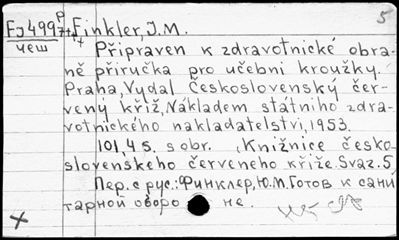 5
Fj499 P Finkler, J. M.
чеш 7+t
Připraven k zdravotnické obra-
ně příručka pro učební kroužky.
Praha, Vydal Československý čer-
vený kříž, Nákladem státního zdra-
votnického nakladatelství, 1953.
101, 4 s. s obr. (Knižnice česko-
slovenského červeného kříže Svaz. 5
Пер. с рус.: Финклер, Ю. М. Готов к сани
тарной оборо не.